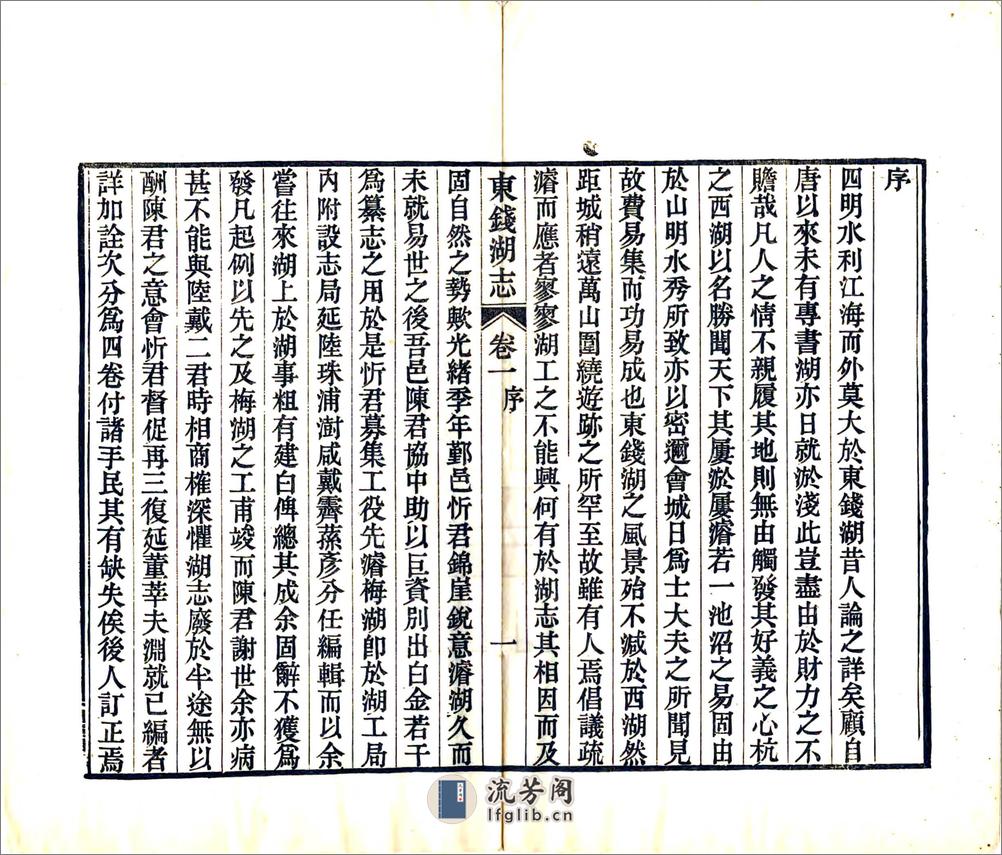 序
四明水利江海而外莫大於東錢湖昔人論之詳矣顧自
唐以來未有專書湖亦日就淤淺此豈盡由於財力之不
贍哉凡人之情不親履其地則無由觸發其好義之心杭
之西湖以名勝聞天下其屢淤屢濬若一池沼之易固由
於山明水秀所致亦以密邇會城日爲士大夫之所聞見
故費易集而功易成也東錢湖之風景殆不減於西湖然
距城稍遠萬山圍繞遊跡之所罕至故雖有人焉倡議疏
濬而應者寥寥湖工之不能興何有於湖志其相因而及
東錢湖志 卷一 序 一
固自然之勢歟光緒季年鄞邑忻君錦崖銳意濬湖久而
未就易世之後吾邑陳君協中助以巨資別出白金若干
爲纂志之用於是忻君募集工役先濬梅湖卽於湖工局
內附設志局延陸珠浦澍咸戴霽蓀彥分任編輯而以余
嘗往來湖上於湖事粗有建白俾總其成余固辭不獲爲
發凡起例以先之及梅湖之工甫竣而陳君謝世余亦病
甚不能與陸戴二君時相商榷深懼湖志廢於半途無以
酬陳君之意會忻君督促再三復延董莘夫淵就已編者
詳加詮次分爲四卷付諸手民其有缺失俟後人訂正焉
流芳阁
lfglib.cn